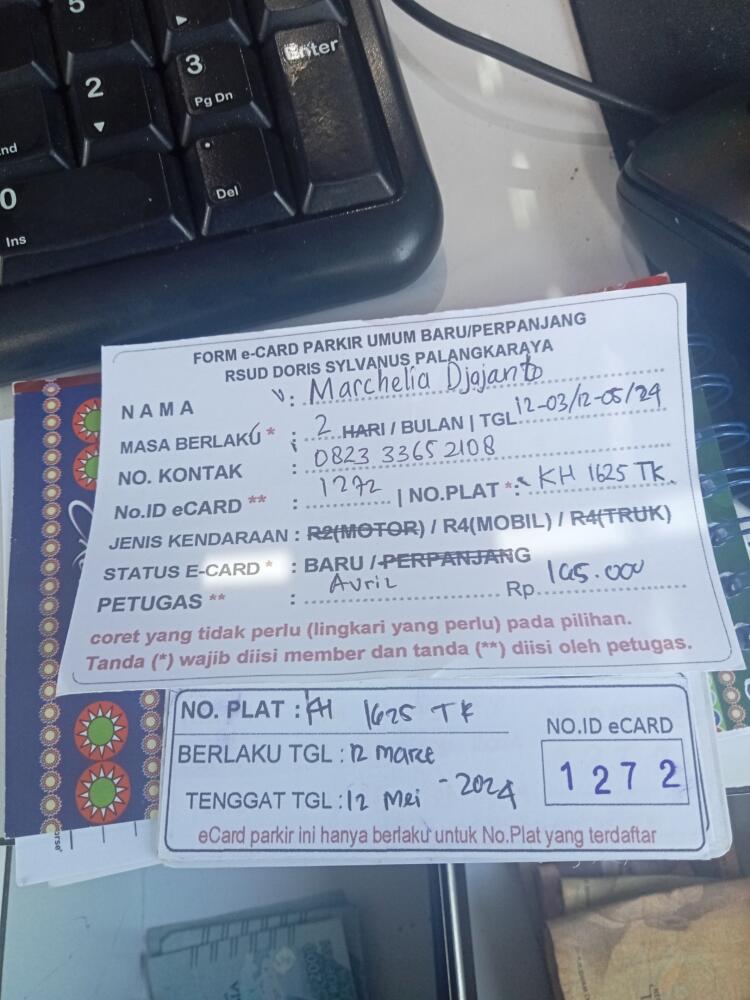 5
2
3
Pg Dn
Enter
nd
0
Ins
Del
FORM e-CARD PARKIR UMUM BARU/PERPANJANG
RSUD DORIS SYLVANUS PALANGKARAYA
NAMA : Marchelia Djajanto
MASA BERLAKU * : 2 HARI / BULAN | TGL 12-03/12-05/24
NO. KONTAK : 0823 3365 2108
No.ID eCARD ** : 1272 | NO.PLAT * : KH 1625 TK.
JENIS KENDARAAN : R2(MOTOR) / R4(MOBIL) / R4(TRUK)
STATUS E-CARD * : BARU / PERPANJANG
PETUGAS ** : Avril Rp 165.000
coret yang tidak perlu (lingkari yang perlu) pada pilihan.
Tanda (*) wajib diisi member dan tanda (**) diisi oleh petugas.
NO. PLAT : KH 1625 TK
NO.ID eCARD
BERLAKU TGL : 12 Maret
1272
TENGGAT TGL : 12 Mei - 2024
eCard parkir ini hanya berlaku untuk No.Plat yang terdaftar